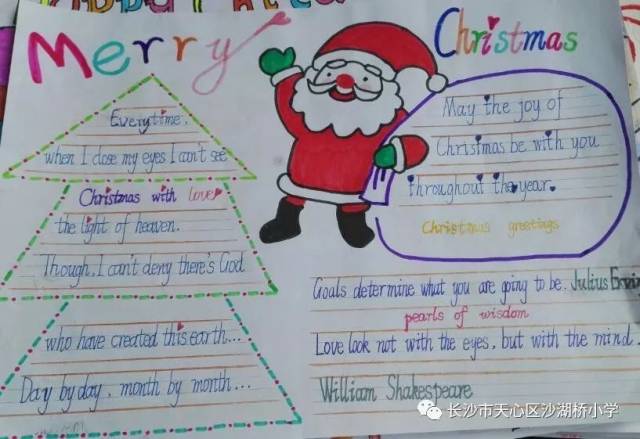 Merry Christmas
Everytime,
when I close my eyes I can't see
Christmas with love
the light of heaven.
Though, I can't deny there's God
who have created this earth...
Day by day, month by month...
May the joy of
Christmas be with you
throughout the year.
Christmas greetings
Goals determine what you are going to be. Julius
pearls of wisdom
Love look not with the eyes, but with the mind.
William Shakespeare
长沙市天心区沙湖桥小学